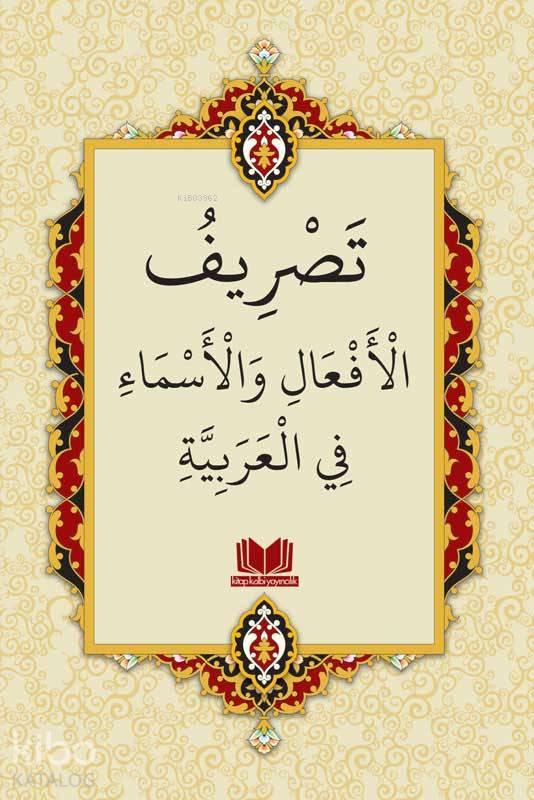 KİB03962
تَصْرِيفُ
الْأَفْعَالِ وَالْأَسْمَاءِ
فِي الْعَرَبِيَّةِ
kitap kalbi yayıncılık
kibu
KATALOG